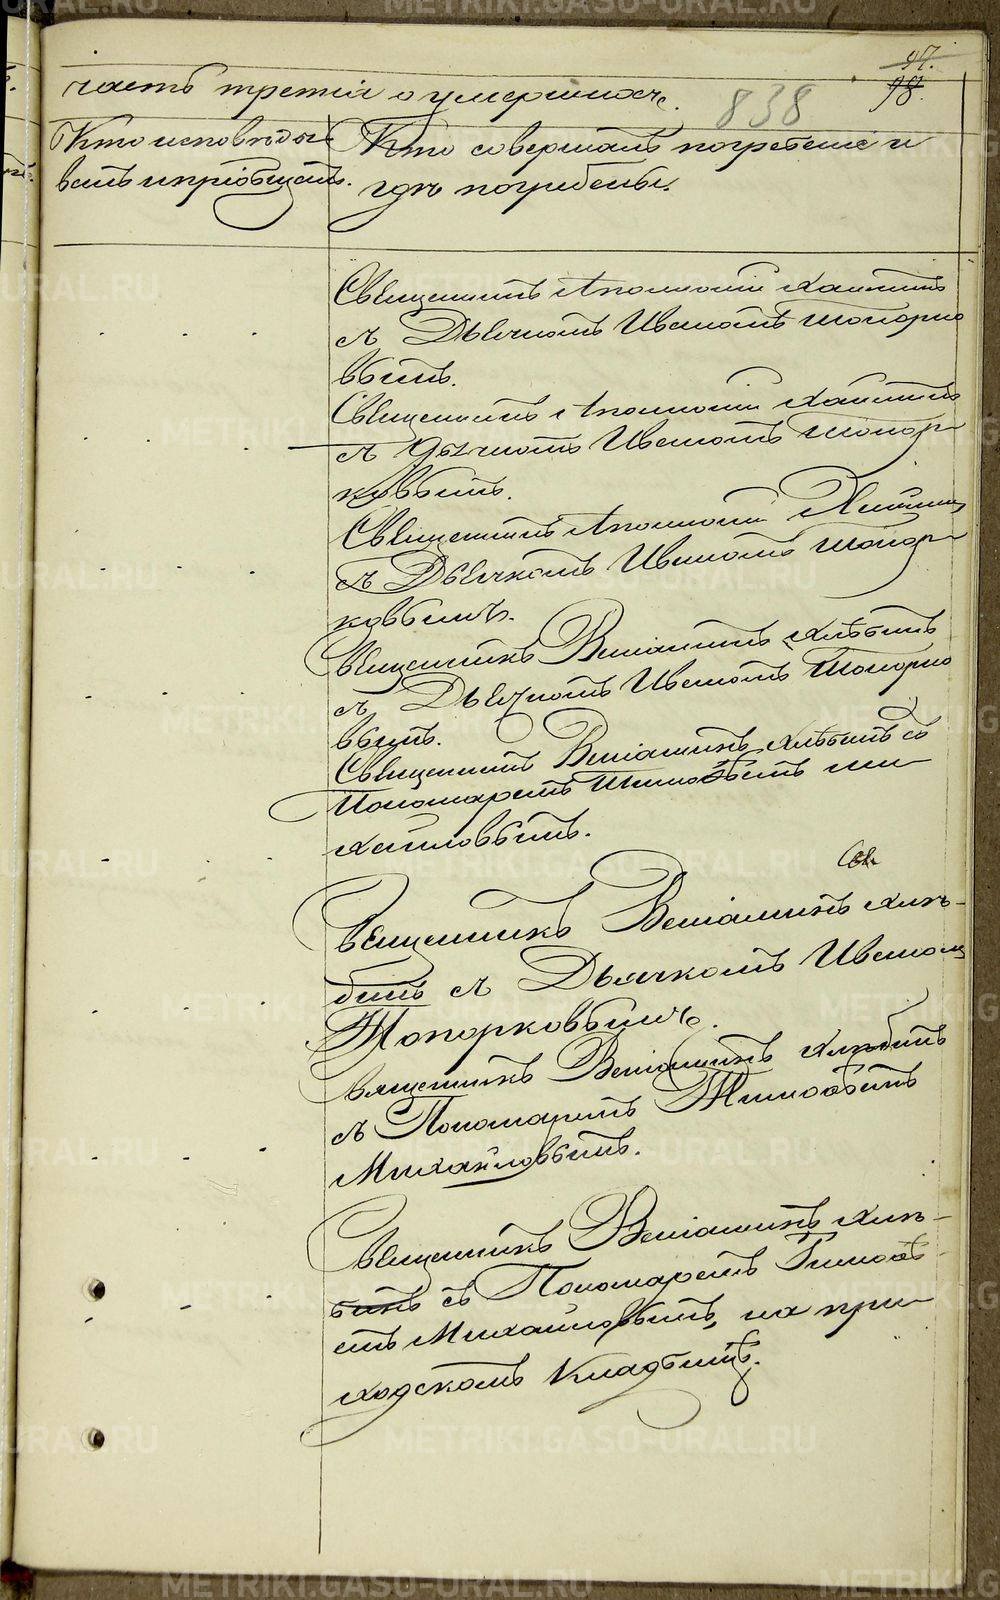 97.
98.
часть третія о умершихъ.
838
Кто исповѣды
валъ и пріобщалъ.
Кто совершалъ погребеніе и
гдѣ погребены.
Священникъ Аполлоній Хлѣбинъ
съ Дьячкомъ Иваномъ Топорко
вымъ.
Священникъ Аполлоній Хлѣбинъ
съ Дьячкомъ Иваномъ Топор
ковымъ.
Священникъ Аполлоній
съ Дьячкомъ Иваномъ Топор
ковымъ.
Священникъ Веніаминъ Хлѣбинъ
съ Дьячкомъ Иваномъ Топорко
вымъ.
Священникъ Веніаминъ Хлѣбинъ съ
Пономаремъ Тимофѣемъ Ми
хайловымъ.
Священникъ Веніаминъ Хлѣ-
бинъ съ Дьячкомъ Иваномъ
Топорковымъ.
Священникъ Веніаминъ Хлѣбинъ
съ Пономаремъ Тимофѣемъ
Михайловымъ.
Священникъ Веніаминъ Хлѣ-
бинъ съ Пономаремъ Тимофѣ-
емъ Михайловымъ, на при
ходскомъ кладбищѣ.
METRIKI.GASO-URAL.RU